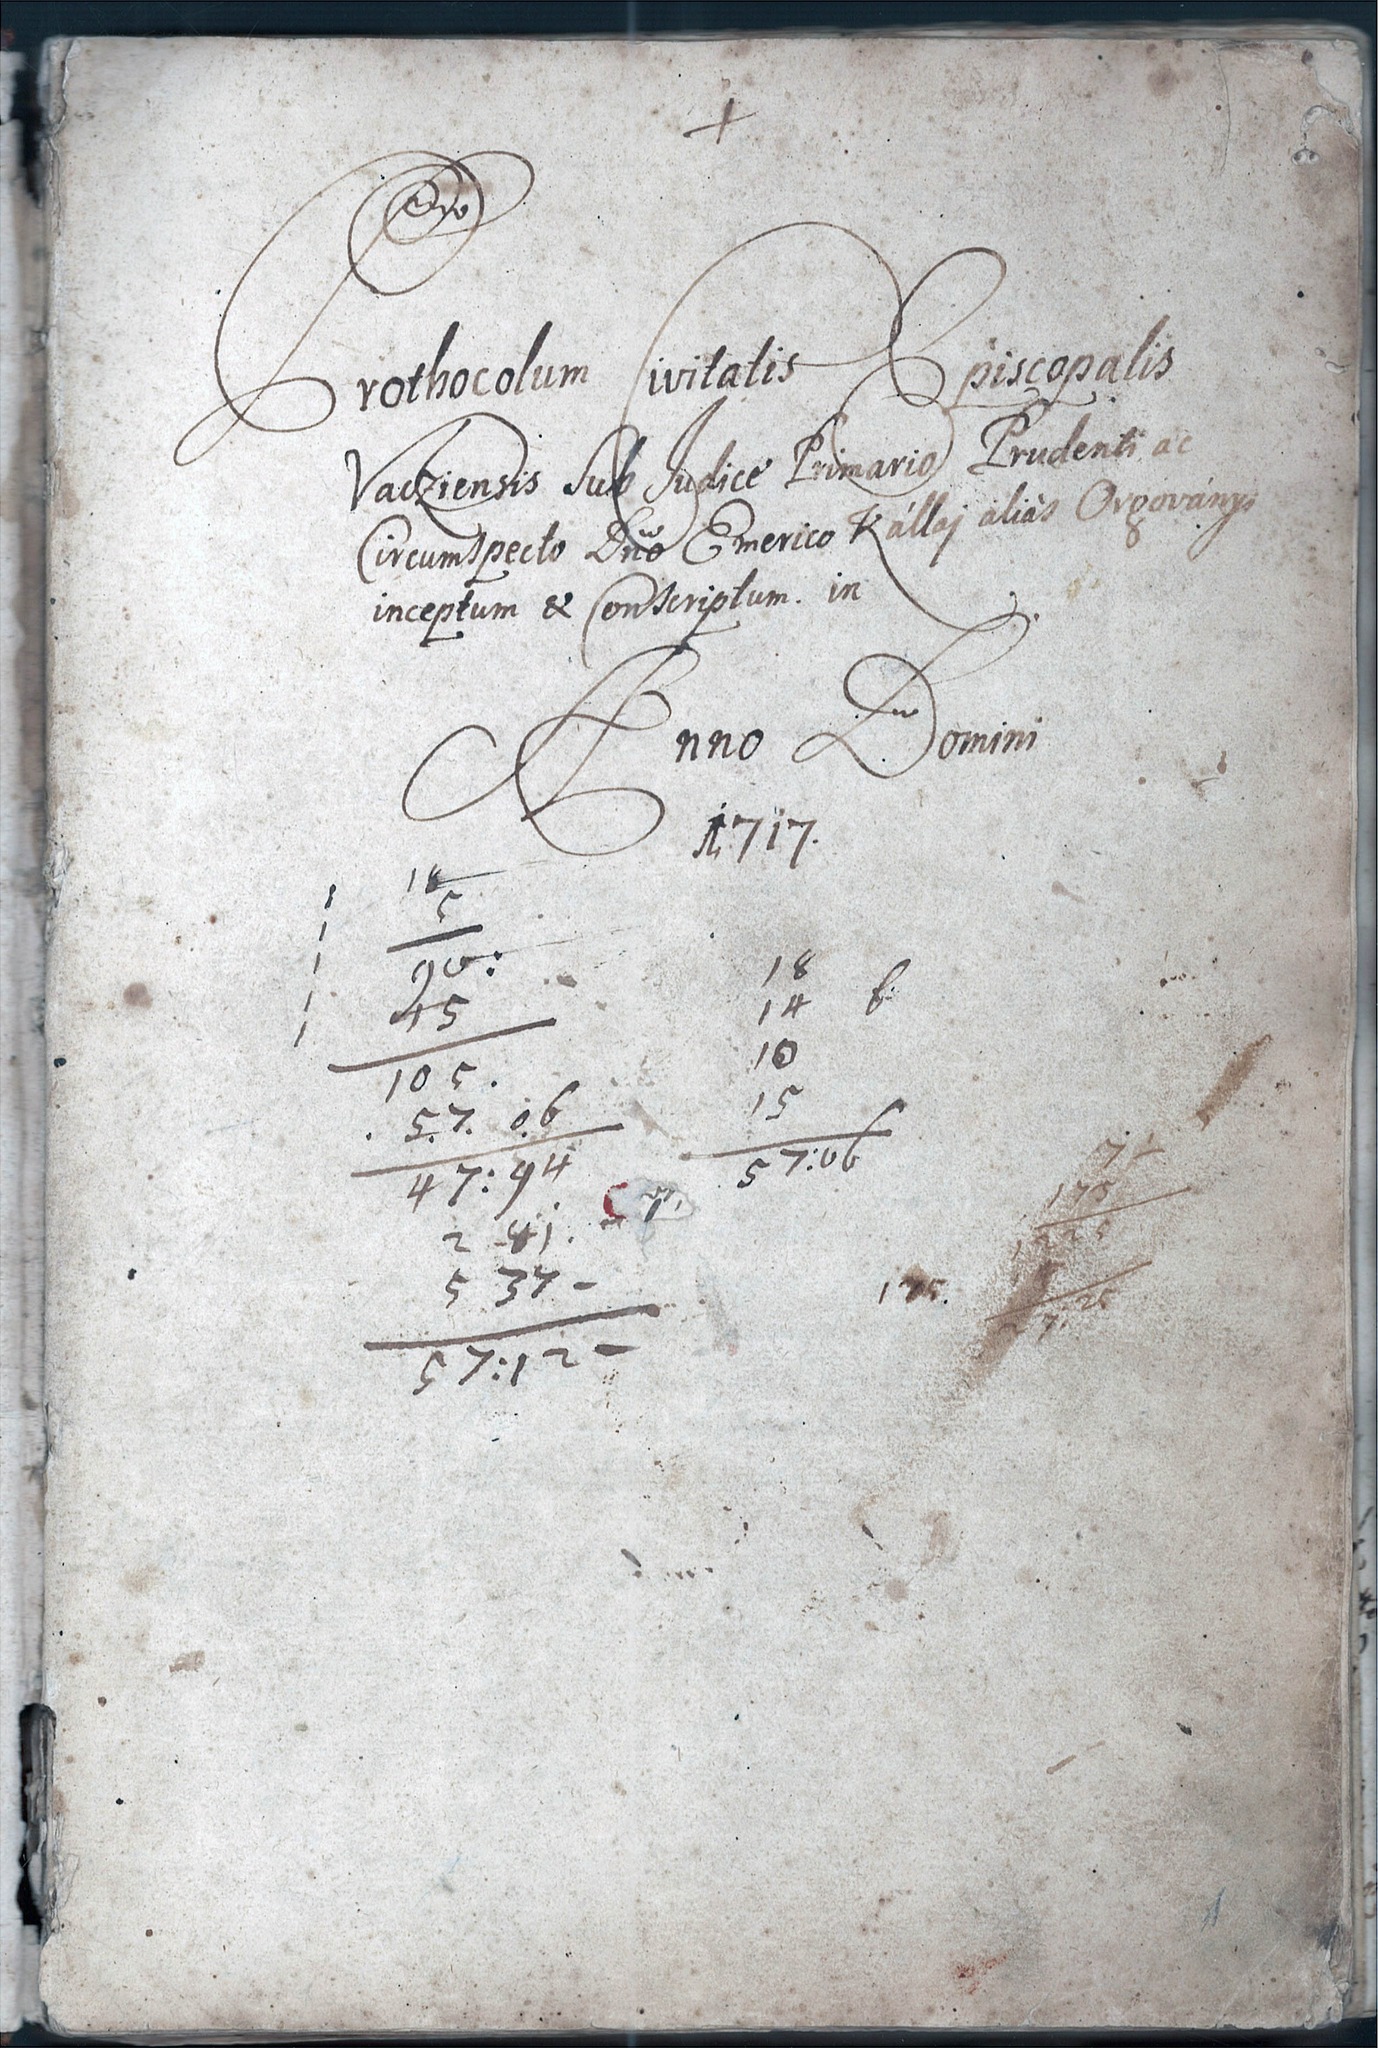 Prothocolum Civitatis Episcopalis
Vacziensis Sub Judice Primario Prudenti ac
Circumspecto Dno Emerico Kállaj aliàs Orgoványi
inceptum & Conscriptum. in
Anno Domini
1717.
18
5
90:
45
105.
57. 06
47:94
2 41.
5 37-
57:12-
18
14 6
10
15
57:06
7
175
1225
175.